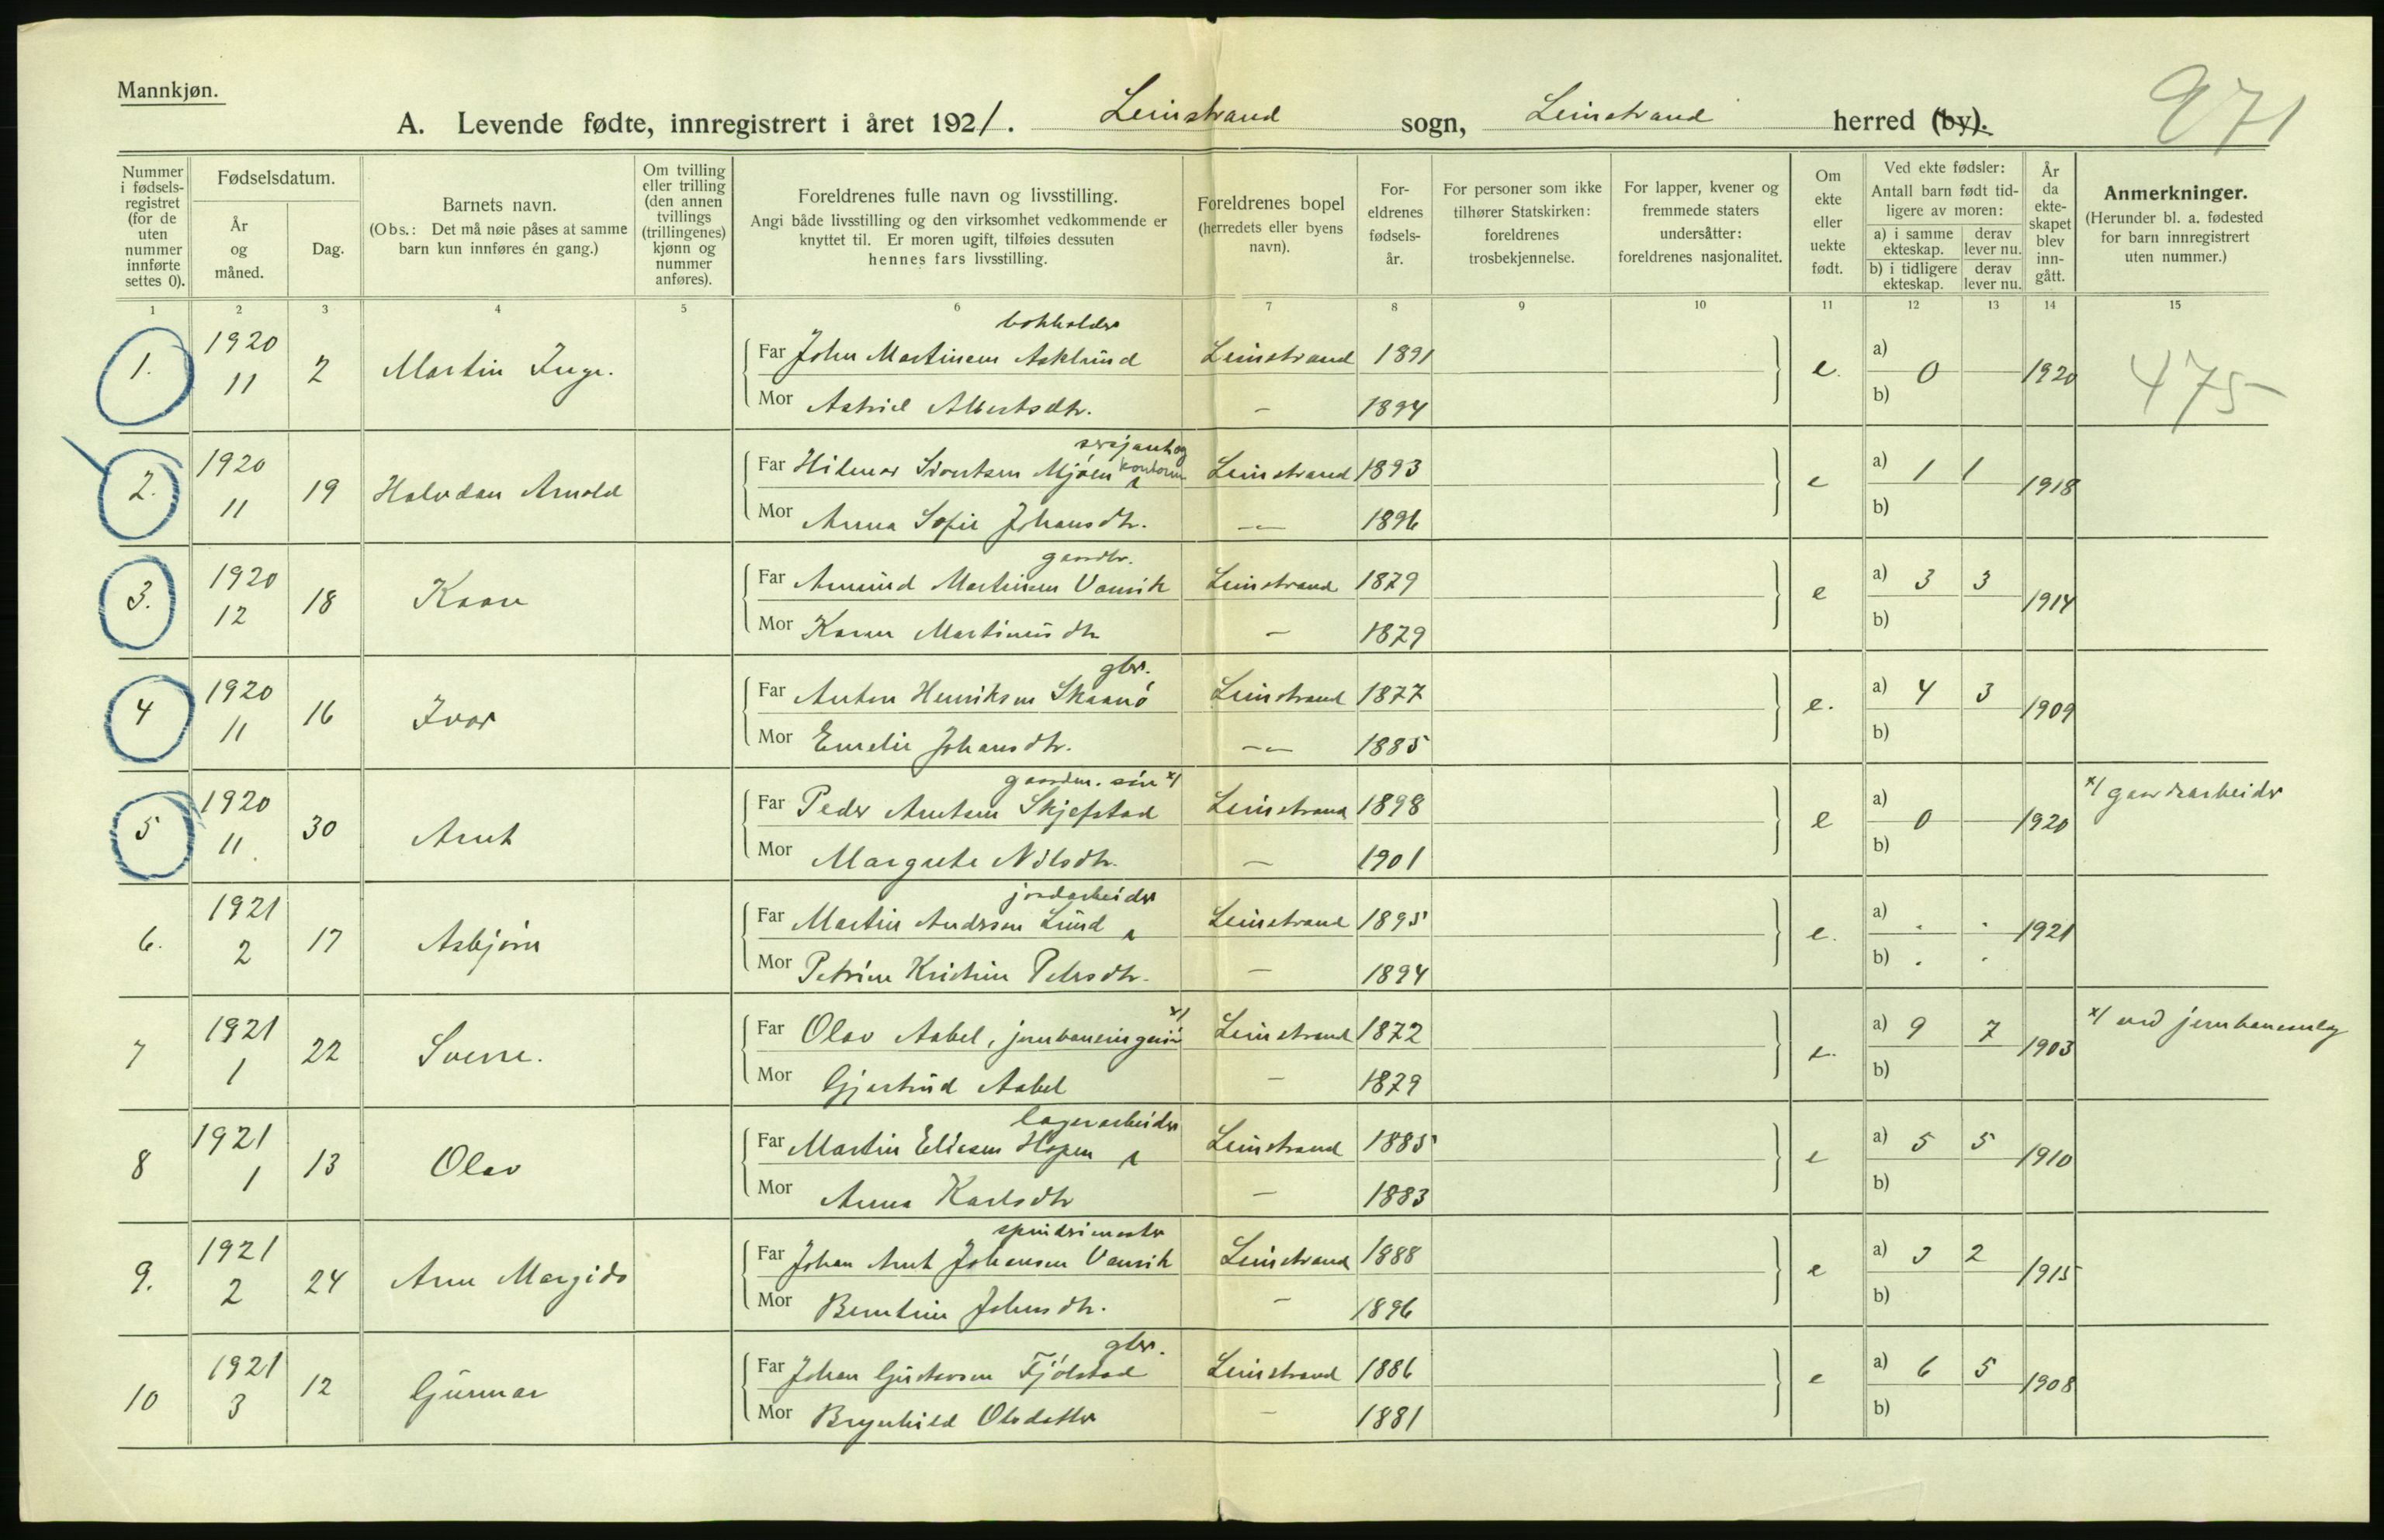 Mannkjøn.
971
A. Levende fødte, innregistrert i året 1921. Leinstrand sogn, Leinstrand herred (by).
Nummer i fødsels-registret (for de uten nummer innførte settes 0).
Fødselsdatum.
År og måned.
Dag.
Barnets navn.
(Obs.: Det må nøie påses at samme barn kun innføres én gang.)
Om tvilling eller trilling (den annen tvillings (trillingenes) kjønn og nummer anføres).
Foreldrenes fulle navn og livsstilling.
Angi både livsstilling og den virksomhet vedkommende er knyttet til. Er moren ugift, tilføies dessuten hennes fars livsstilling.
Foreldrenes bopel (herredets eller byens navn).
For-eldrenes fødsels-år.
For personer som ikke tilhører Statskirken: foreldrenes trosbekjennelse.
For lapper, kvener og fremmede staters undersåtter: foreldrenes nasjonalitet.
Om ekte eller uekte født.
Ved ekte fødsler:
Antall barn født tid-ligere av moren:
a) i samme ekteskap. derav lever nu.
b) i tidligere ekteskap. derav lever nu.
År da ekte-skapet blev inn-gått.
Anmerkninger.
(Herunder bl. a. fødested for barn innregistrert uten nummer.)
1 2 3 4 5 6 7 8 9 10 11 12 13 14 15
bokholder
1. 1920 11 2 Martin Inge. Far John Martinsen Asklund Leinstrand 1891 e. a) 0 b) 1920 475
Mor Astrid Albertsdtr. — 1894
sersjant og kontorm
2. 1920 11 19 Halvdan Arnold Far Hilmar Sivertsen Mjøen Leinstrand 1893 e a) 1 1 b) 1918
Mor Anna Sofie Johansdtr. — 1896
gaardbr.
3. 1920 12 18 Kaare Far Amund Martinsen Vensik Leinstrand 1879 e a) 3 3 b) 1914
Mor Karen Martinusdtr — 1879
gbr.
4 1920 11 16 Ivar Far Anton Henriksen Skaanø Leinstrand 1877 e. a) 4 3 b) 1909
Mor Emelie Johansdtr. — 1885
gaardm. søn x/
5 1920 11 30 Arnt Far Peder Arntsen Skjefstad Leinstrand 1898 e a) 0 b) 1920 x/ gaardsarbeider
Mor Margrete Nilsdtr. — 1901
jordarbeider
6. 1921 2 17 Asbjørn Far Martin Andersen Lund Leinstrand 1895 e. a) . . b) . . 1921
Mor Petrine Kristine Petersdtr. — 1894
x/
7 1921 1 22 Sverre. Far Olav Aabel, jernbaneingeniør Leinstrand 1872 e. a) 9 7 b) 1903 x/ ved jernbaneanleg
Mor Gjertrud Aabel — 1879
lagerarbeider
8 1921 1 13 Olav Far Martin Eliesen Hopen Leinstrand 1885 e a) 5 5 b) 1910
Mor Anna Karlsdtr — 1883
spinderimester
9. 1921 2 24 Arne Margido Far Johan Arnt Johansen Vensik Leinstrand 1888 e a) 3 2 b) 1915
Mor Berntine Johnsdtr. — 1896
gbr.
10 1921 3 12 Gunnar Far Johan Gustavsen Fjølstad Leinstrand 1886 e a) 6 5 b) 1908
Mor Brynhild Olsdatter — 1881